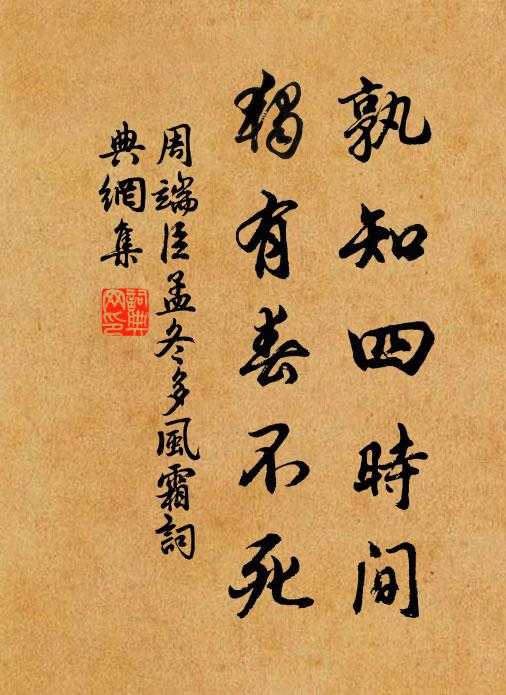 孰知四時間
獨有春不死
周端臣孟冬多風霜詞
典網集
詞典網印